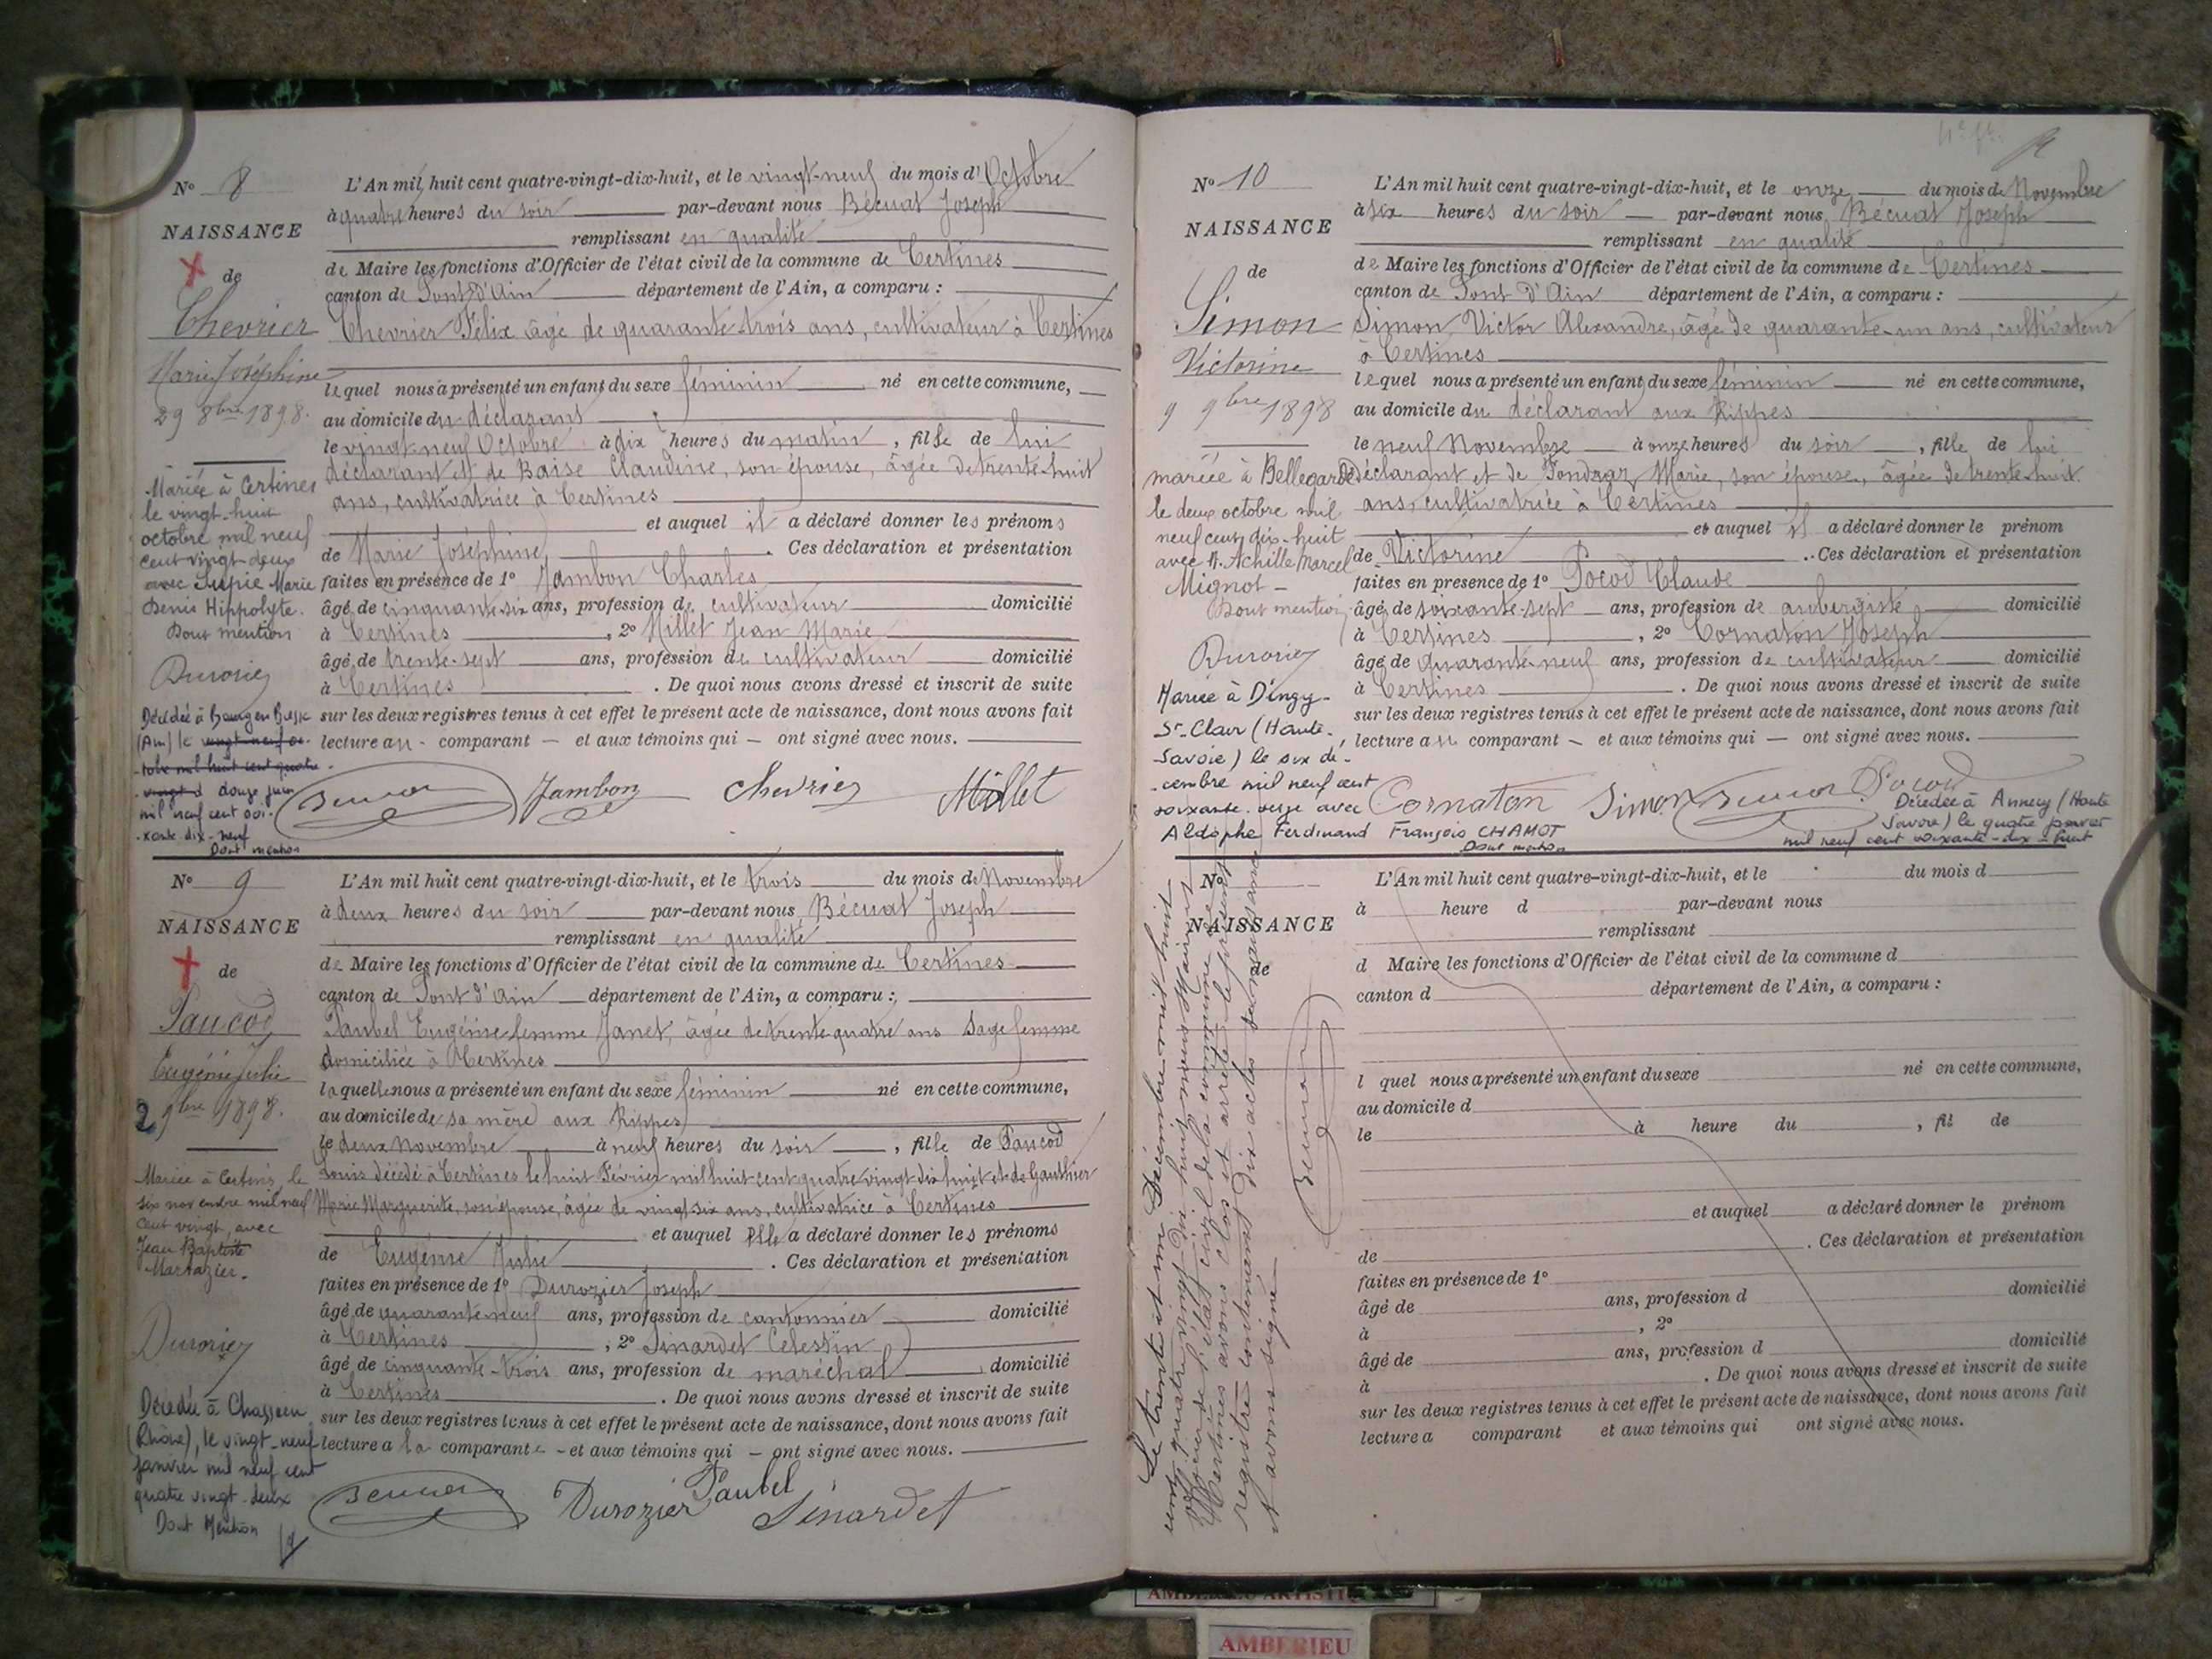 N° 8
NAISSANCE
de
Chevrier
Marie Joséphine
29 8bre 1898.
Mariée à Certines
le vingt-huit
octobre mil neuf
cent vingt deux
avec Marie
Denis Hippolyte.
Dont mention
Durozier
Décédée à Bourg en Bresse
(Ain) le vingt-neuf oc-
-tobre mil huit cent quatre-
-vingt d douze juin
mil neuf cent soi-
-xante-dix-neuf
Dont mention
L'An mil huit cent quatre-vingt-dix-huit, et le vingt-neuf du mois d'Octobre
à quatre heures du soir par-devant nous Bécuat Joseph
remplissant en qualité
de Maire les fonctions d'Officier de l'état civil de la commune de Certines
canton de Pont-d'Ain département de l'Ain, a comparu :
Chevrier Félix âgé de quarante-trois ans, cultivateur à Certines
lequel nous a présenté un enfant du sexe féminin né en cette commune,
au domicile du déclarant
le vingt-neuf Octobre à dix heures du matin, fille de lui
déclarant et de Baise Claudine, son épouse, âgée de trente-huit
ans, cultivatrice à Certines
et auquel il a déclaré donner les prénoms
de Marie Joséphine. Ces déclaration et présentation
faites en présence de 1° Jambon Charles
âgé de cinquante-six ans, profession de cultivateur domicilié
à Certines, 2° Millet Jean Marie
âgé de trente-sept ans, profession de cultivateur domicilié
à Certines. De quoi nous avons dressé et inscrit de suite
sur les deux registres tenus à cet effet le présent acte de naissance, dont nous avons fait
lecture au comparant et aux témoins qui ont signé avec nous.
Bécuat Jambon Chevrier Millet
N° 9
NAISSANCE
de
Paucod
Eugénie Julie
2 9bre 1898.
Mariée à Certines, le
six novembre mil neuf
cent vingt, avec
Jean Baptiste
Durozier
Décédée à
(Rhône), le vingt-neuf
janvier mil neuf cent
quatre vingt-deux
Dont Mention
L'An mil huit cent quatre-vingt-dix-huit, et le trois du mois de Novembre
à deux heures du soir par-devant nous Bécuat Joseph
remplissant en qualité
de Maire les fonctions d'Officier de l'état civil de la commune de Certines
canton de Pont d'Ain département de l'Ain, a comparu :
Paubel Eugénie femme Janet, âgée de trente-quatre ans Sage femme
domiciliée à Certines
laquelle nous a présenté un enfant du sexe féminin né en cette commune,
au domicile de sa mère aux Rippes
le deux Novembre à neuf heures du soir, fille de Paucod
Louis décédé à Certines le huit Février mil huit cent quatre vingt dix huit et de Gauthier
Marie Marguerite, son épouse, âgée de vingt six ans, cultivatrice à Certines
et auquel Elle a déclaré donner les prénoms
de Eugénie Julie. Ces déclaration et présentation
faites en présence de 1° Durozier Joseph
âgé de quarante-neuf ans, profession de cantonnier domicilié
à Certines, 2° Sinardet Célestin
âgé de cinquante-trois ans, profession de maréchal domicilié
à Certines. De quoi nous avons dressé et inscrit de suite
sur les deux registres tenus à cet effet le présent acte de naissance, dont nous avons fait
lecture a la comparante - et aux témoins qui - ont signé avec nous.
Bécuat Durozier Paubel Sinardet
N° 10
NAISSANCE
de
Simon
Victorine
9 9bre 1898
mariée à Bellegarde
le deux octobre mil
neuf cent dix-huit
avec M. Achille Marcel
Mignot -
Dont mention
Durozier
Mariée à Dingy-
St-Clair (Haute-
Savoie) le six dé-
-cembre mil neuf cent
soixante-onze avec
Aldophe Ferdinand François CHAMOT
Dont mention
L'An mil huit cent quatre-vingt-dix-huit, et le onze du mois de Novembre
à six heures du soir par-devant nous Bécuat Joseph
remplissant en qualité
de Maire les fonctions d'Officier de l'état civil de la commune de Certines
canton de Pont d'Ain département de l'Ain, a comparu :
Simon Victor Alexandre, âgé de quarante-un ans, cultivateur
à Certines
lequel nous a présenté un enfant du sexe féminin né en cette commune,
au domicile du déclarant aux Rippes
le neuf Novembre à onze heures du soir, fille de lui
déclarant et de Marie, son épouse, âgée de trente-huit
ans, cultivatrice à Certines
et auquel il a déclaré donner le prénom
de Victorine. Ces déclaration et présentation
faites en présence de 1° Pocod Claude
âgé de soixante-sept ans, profession de aubergiste domicilié
à Certines, 2° Cornaton Joseph
âgé de quarante-neuf ans, profession de cultivateur domicilié
à Certines. De quoi nous avons dressé et inscrit de suite
sur les deux registres tenus à cet effet le présent acte de naissance, dont nous avons fait
lecture au comparant - et aux témoins qui - ont signé avec nous.
Cornaton Simon Bécuat Pocod
Décédée à Annecy (Haute
Savoie) le quatre janvier
mil neuf cent soixante-dix-huit
N°
NAISSANCE
de
L'An mil huit cent quatre-vingt-dix-huit, et le du mois d
à heure d par-devant nous
remplissant
d Maire les fonctions d'Officier de l'état civil de la commune d
canton d département de l'Ain, a comparu :
l quel nous a présenté un enfant du sexe né en cette commune,
au domicile d
le à heure du , fil de
et auquel a déclaré donner le prénom
de . Ces déclaration et présentation
faites en présence de 1°
âgé de ans, profession d domicilié
à , 2°
âgé de ans, profession d domicilié
à . De quoi nous avons dressé et inscrit de suite
sur les deux registres tenus à cet effet le présent acte de naissance, dont nous avons fait
lecture a comparant et aux témoins qui ont signé avec nous.
Le trente et un Décembre mil huit
cent quatre vingt dix huit, nous Maire et
officier de l'état civil de la commune de
Certines avons clos et arrêté le présent
registre contenant dix actes de naissance
et avons signé
Bécuat
AMBERIEU